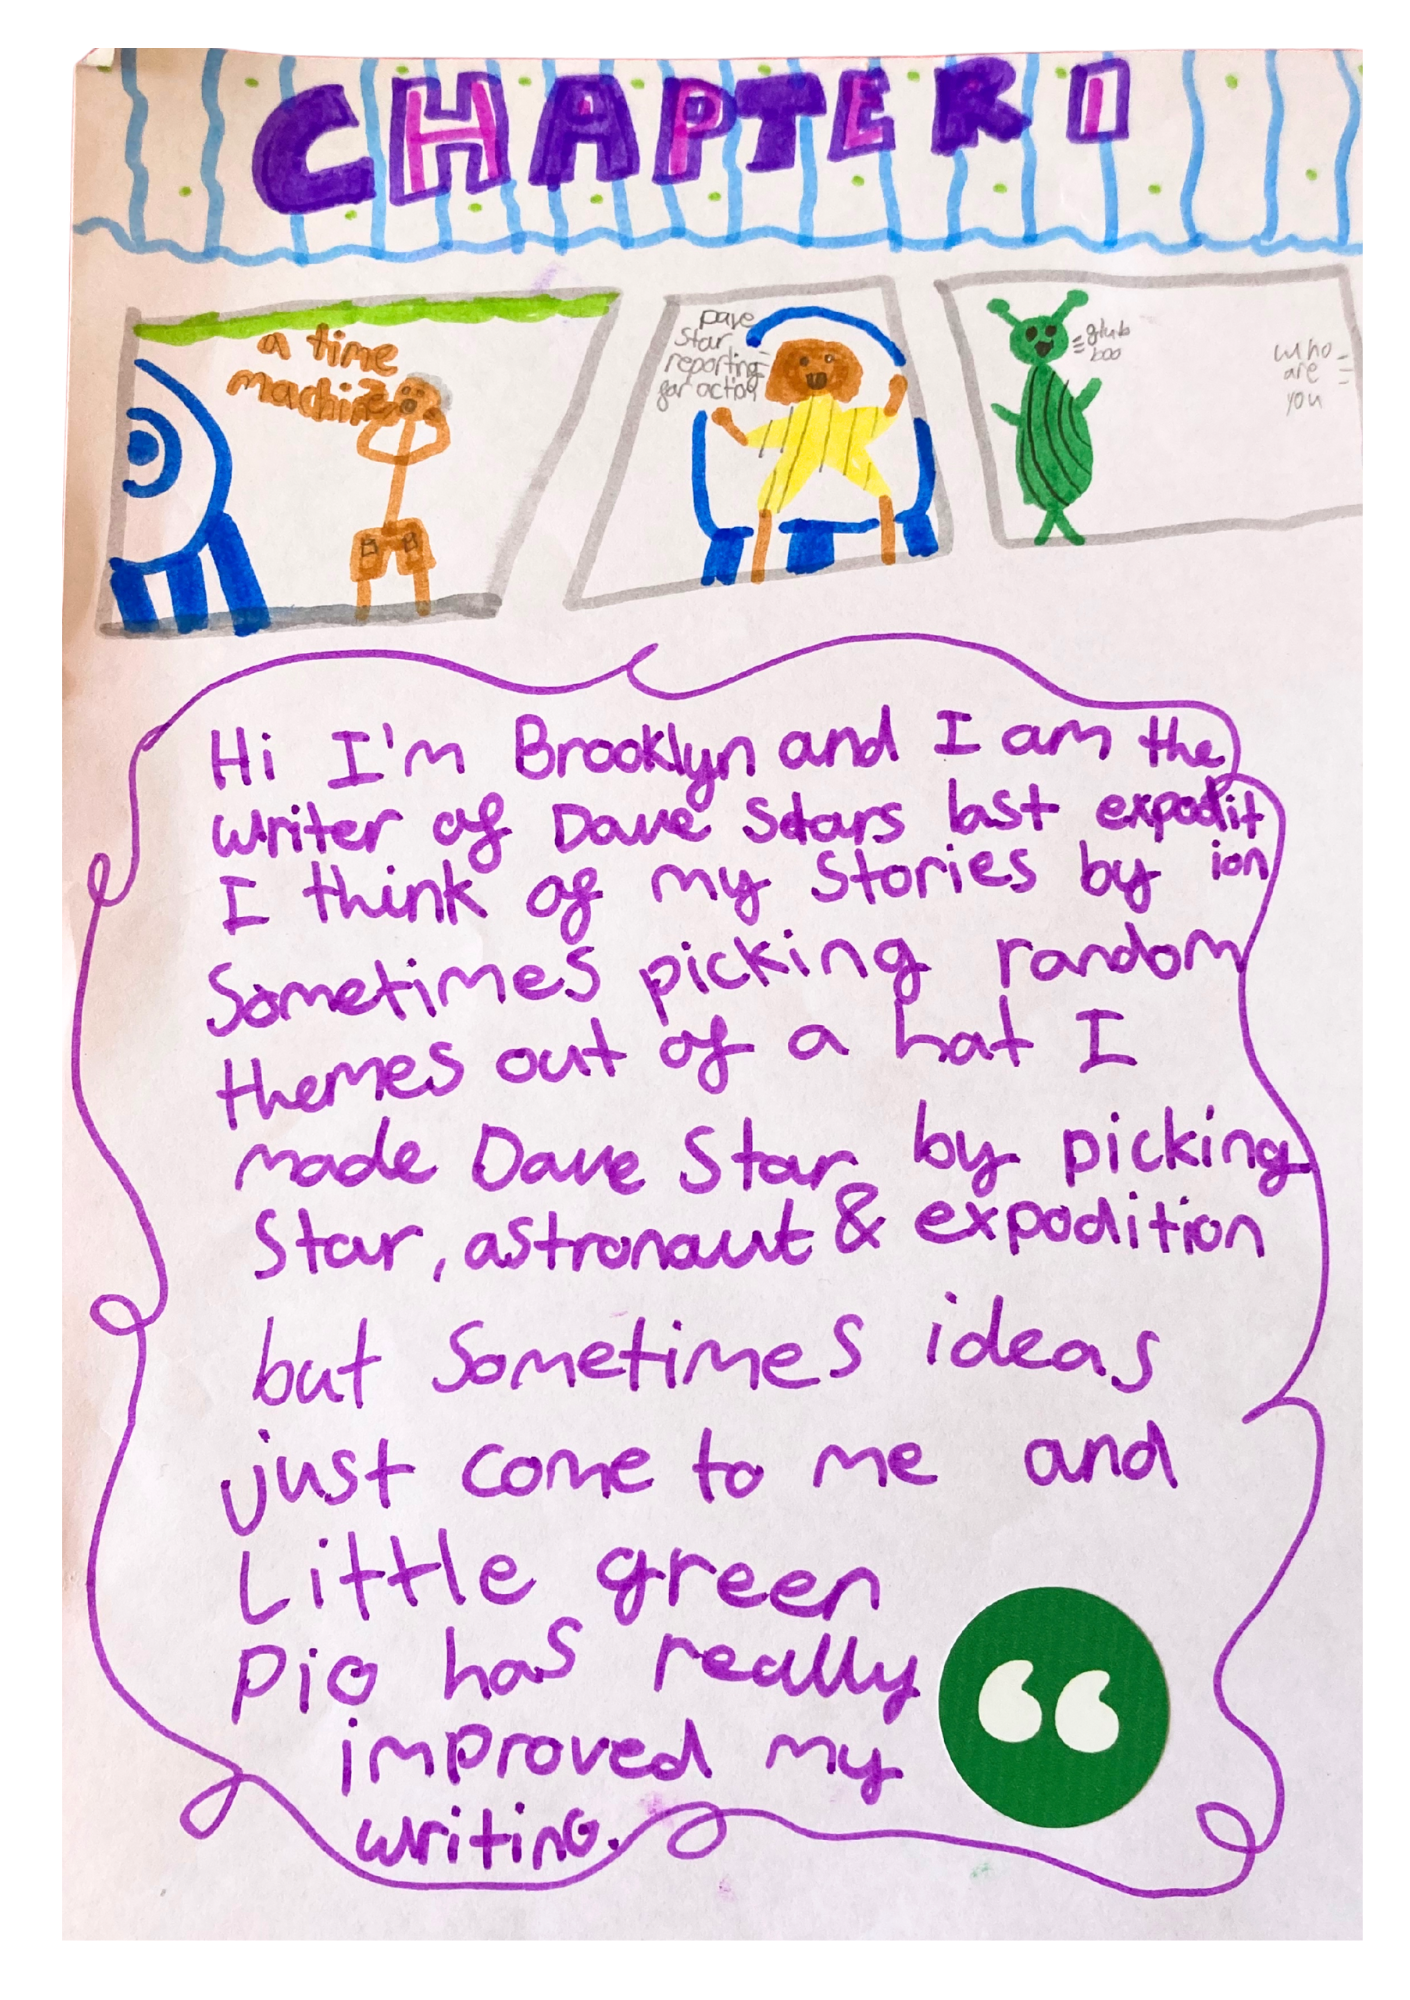 CHAPTER 1
a time
machine
Dave
Star
reporting
for action
glub
boo
who
are
you
Hi I'm Brooklyn and I am the
writer of Dave Stars last expodit
ion
I think of my Stories by
Sometimes picking random
themes out of a hat I
made Dave Star by picking
Star, astronaut & expodition
but Sometimes ideas
just come to me and
Little green
pig has really
improved my
writing.
“